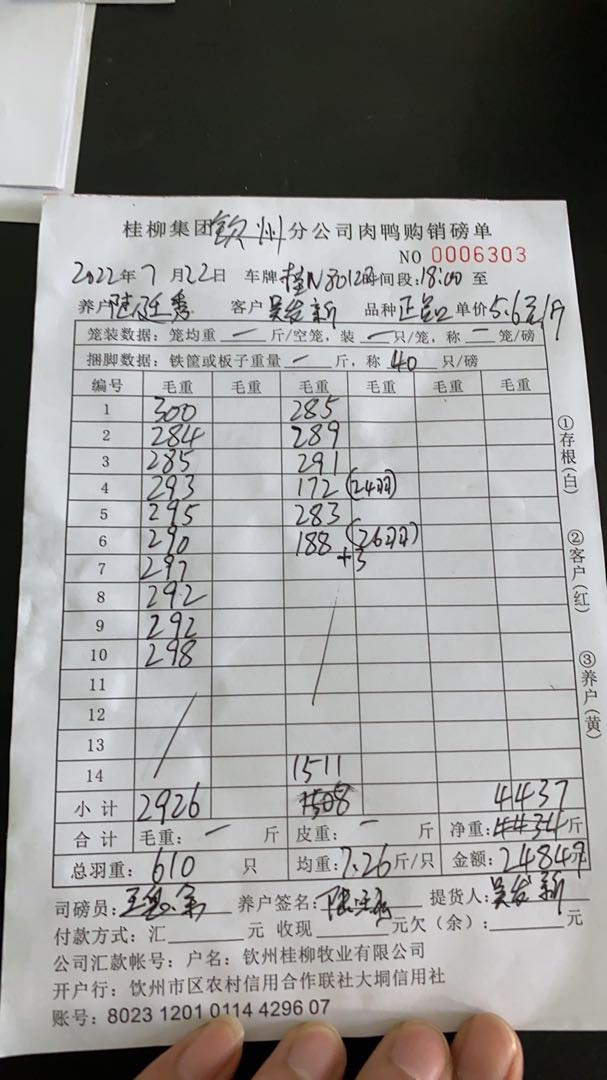 桂柳集团钦州分公司肉鸭购销磅单
NO 0006303
2022年7月22日 车牌:桂N80120时间段:18:00 至
养户 客户 吴发新 品种 单价5.6元/斤
笼装数据:笼均重 一 斤/空笼,装 一 只/笼,称 一 笼/磅
捆脚数据:铁筐或板子重量 一 斤,称 40 只/磅
编号 毛重 毛重 毛重 毛重 毛重 毛重
1 300 285
2 284 289
3 285 291
4 293 172 (24羽)
5 295 283
6 290 188 (26羽)
7 297 +3
8 292
9 292
10 298
11
12
13
14 1511
小计 2926 1508 4437
合计 毛重: 一 斤 皮重: 一 斤 净重:4434斤
总羽重: 610 只 均重:7.26斤/只 金额:24847
司磅员: 养户签名: 提货人:吴发新
付款方式:汇 元 收现 元欠(余): 元
公司汇款帐号:户名:钦州桂柳牧业有限公司
开户行:钦州市区农村信用合作联社大垌信用社
账号:8023 1201 0114 4296 07
①存根(白)
②客户(红)
③养户(黄)